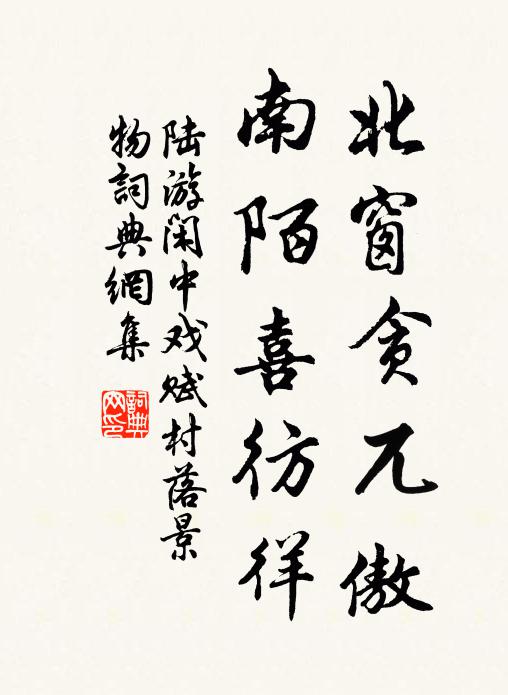 北窗贪兀傲
南陌喜彷徉
陆游闲中戏赋村落景
物詞典網集
詞典网印